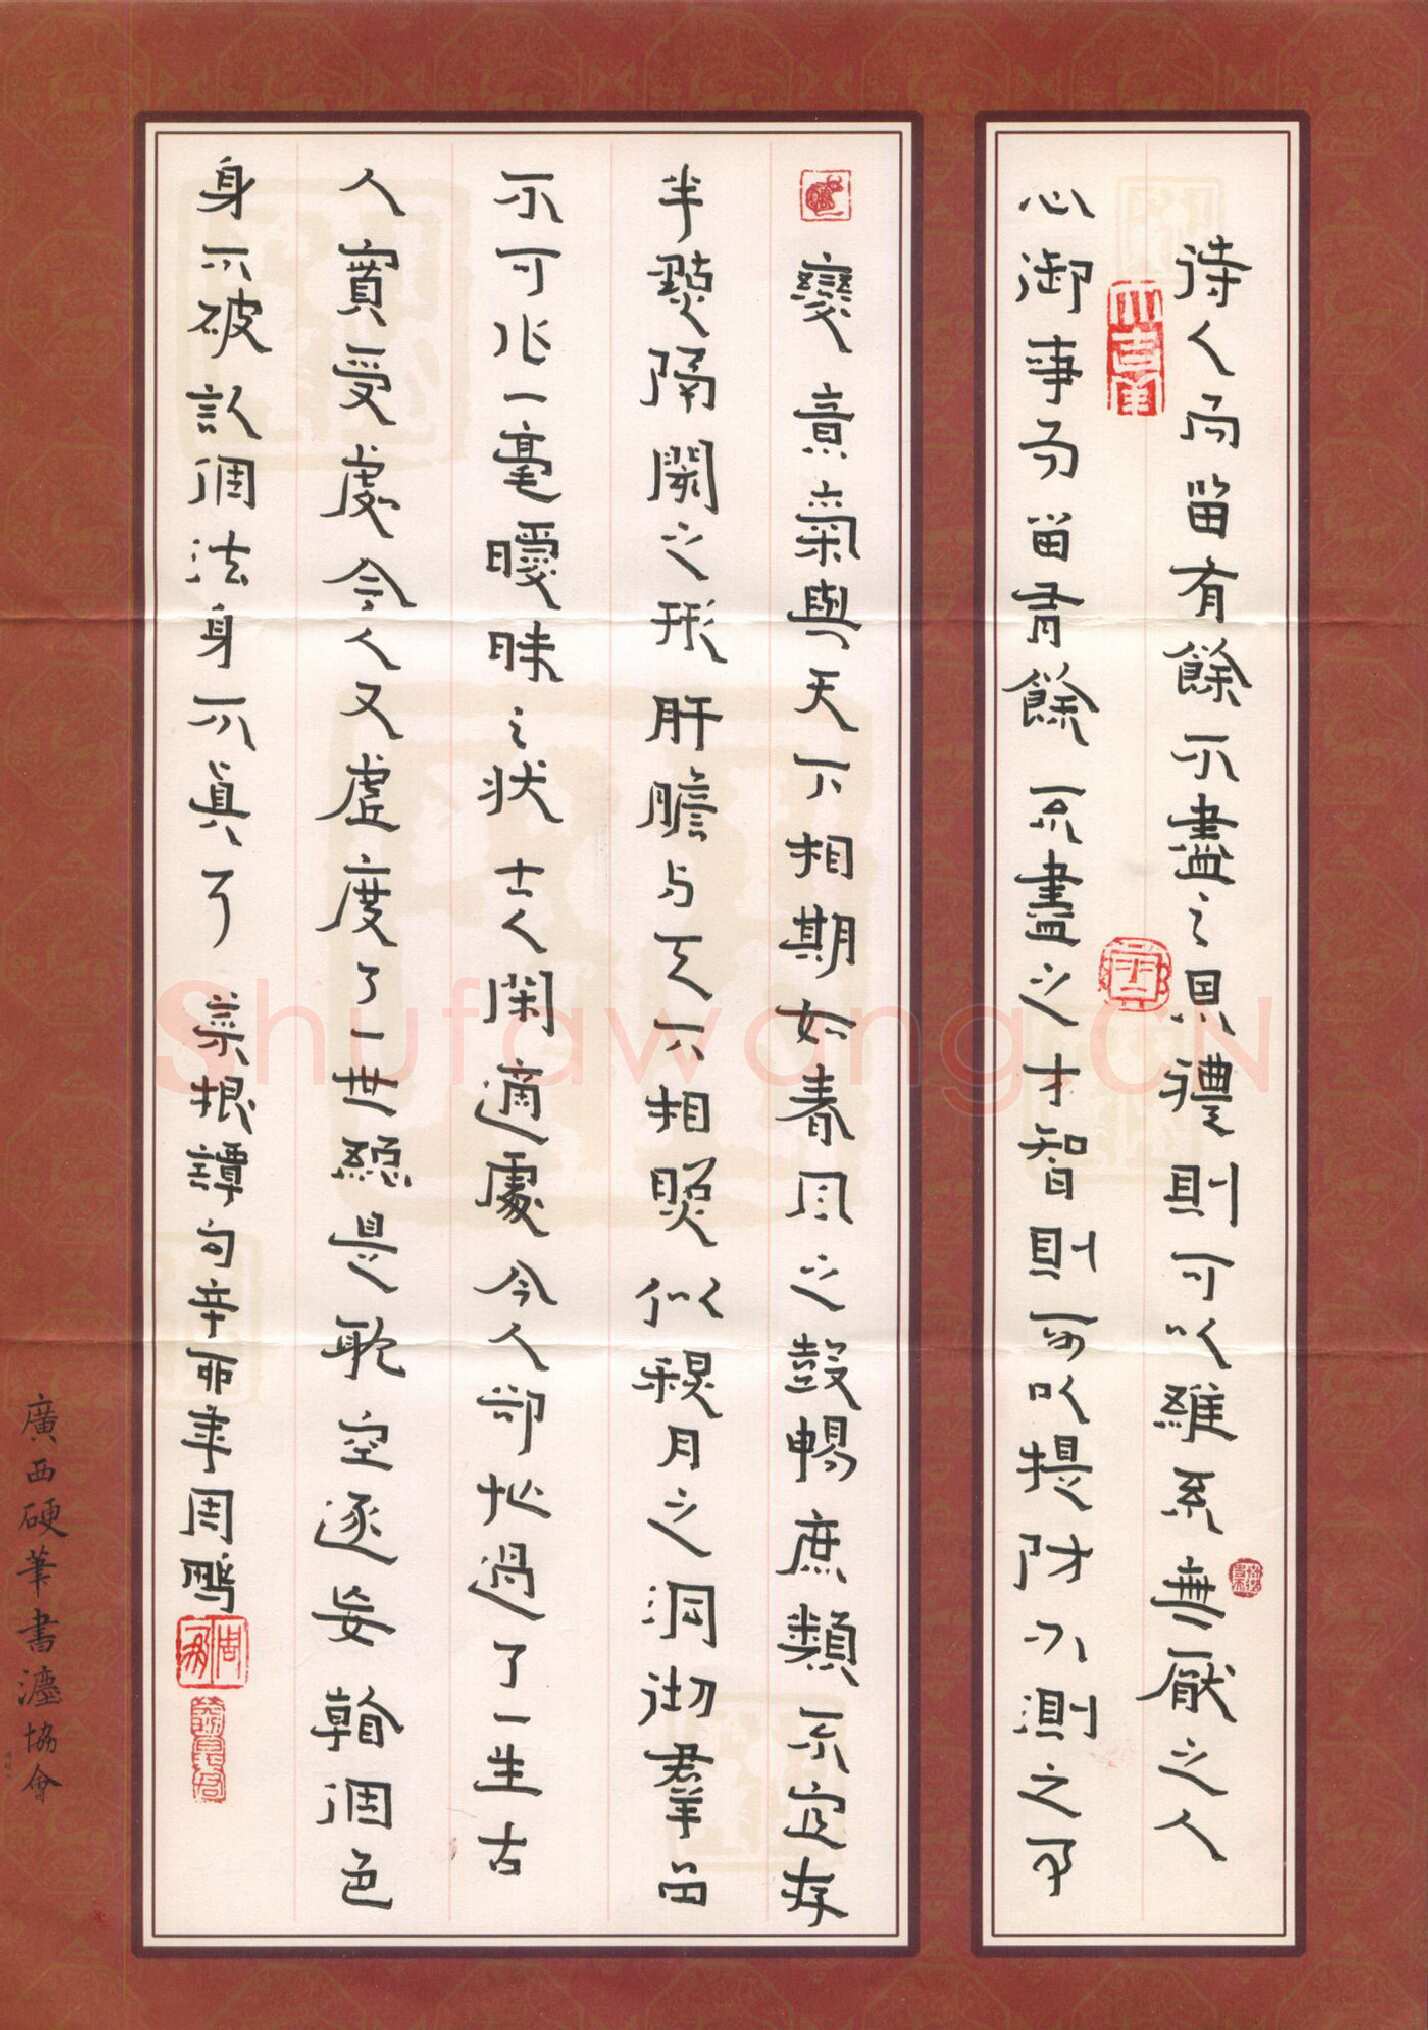 待人而留有餘不盡之恩禮則可以維系無厭之人
心御事而留有餘不盡之才智則可以提防不測之事
變意氣與天下相期如春風之鼓暢庶類不宜存
半點隔閡之形肝膽与天下相照似秋月之洞徹羣品
不可作一毫曖昧之状士人閑適處今人却忙過了一生古
人實受處今人又虛度了一世總是耽空逐妄看個色
身不破認個法身不真了 菜根譚句辛卯年周鵬
廣西硬筆書灋協會
Shufawang.CN